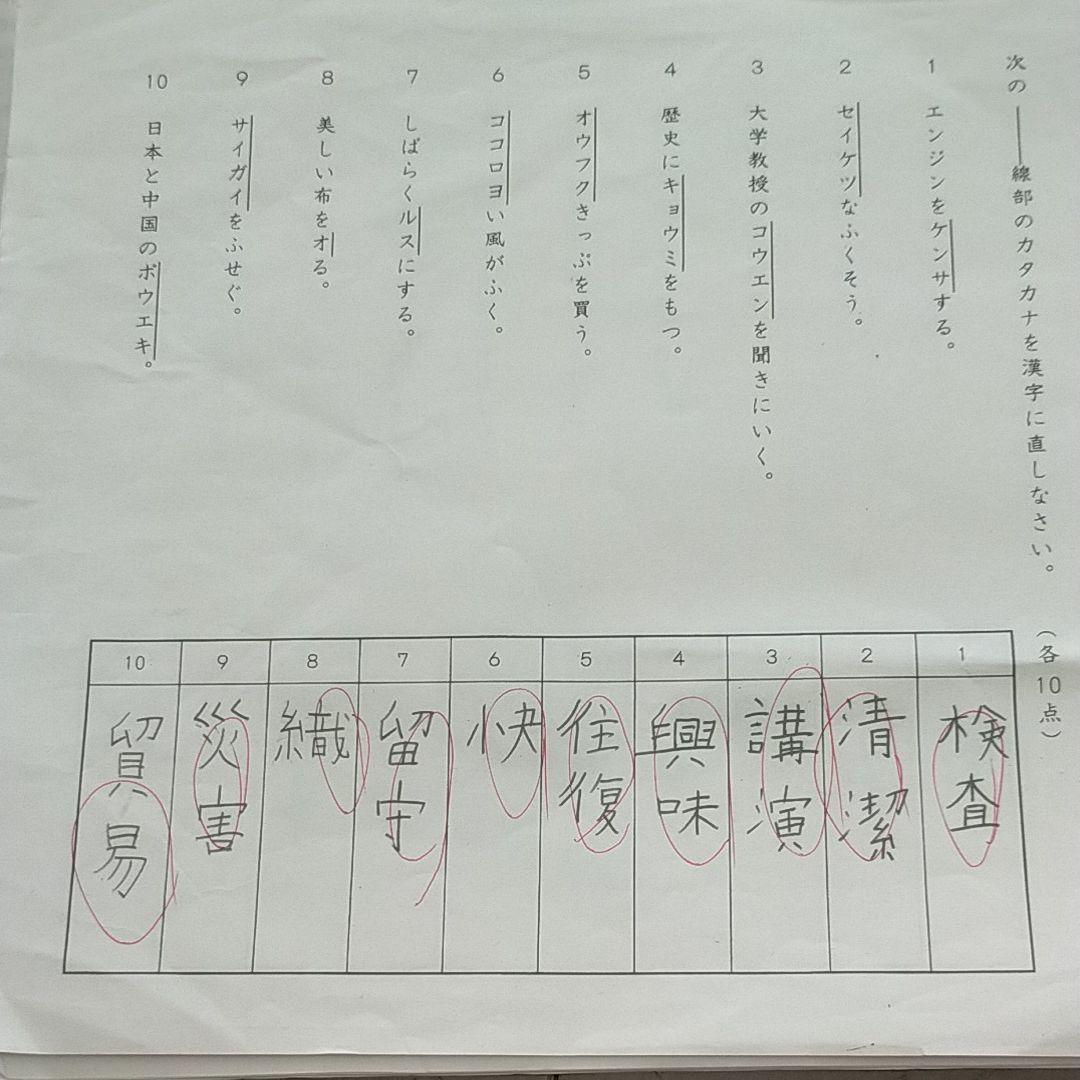 次の――線部のカタカナを漢字に直しなさい。
（各10点）
1 エンジンをケンサする。
2 セイケツなふくそう。
3 大学教授のコウエンを聞きにいく。
4 歴史にキョウミをもつ。
5 オウフクきっぷを買う。
6 ココロヨい風がふく。
7 しばらくルスにする。
8 美しい布をオる。
9 サイガイをふせぐ。
10 日本と中国のボウエキ。
1 検査
2 清潔
3 講演
4 興味
5 往復
6 快
7 留守
8 織
9 災害
10 貿易